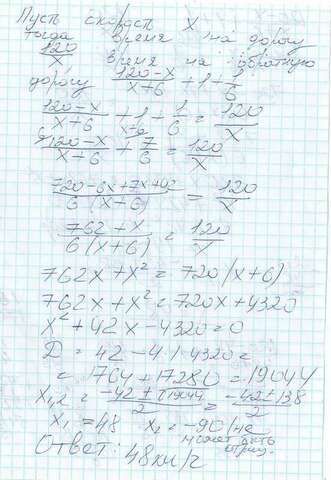 Пусть скорость x
тогда время на дорогу
120/x время на обратную
дорогу (120-x)/(x+6) + 1 + 1/6
(120-x)/(x+6) + 1 + 1/6 = 120/x
(120-x)/(x+6) + 7/6 = 120/x
(720-6x+7x+42)/(6(x-6)) = 120/x
(762+x)/(6(x+6)) = 120/x
762x+x² = 720(x+6)
762x+x² = 720x+4320
x²+42x-4320=0
D = 42-4·/·4320=
= 1764+17280=19044
x₁,₂ = (-42±√19044)/2 = (-42±138)/2
x₁ = 48 x₂ = -90/не
может быть
отриц.
Ответ: 48км/г